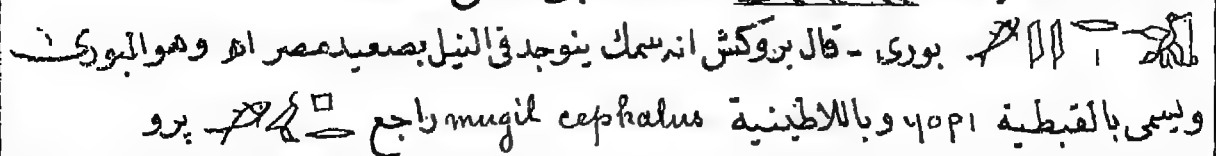 بورى - قال بروكش انه سمك ينوجد فى النيل بصعيد مصر اه وهو البورى
ويسمى بالقبطية ϥⲟⲣⲓ وباللاطينية mugil cephalus راجع پرو